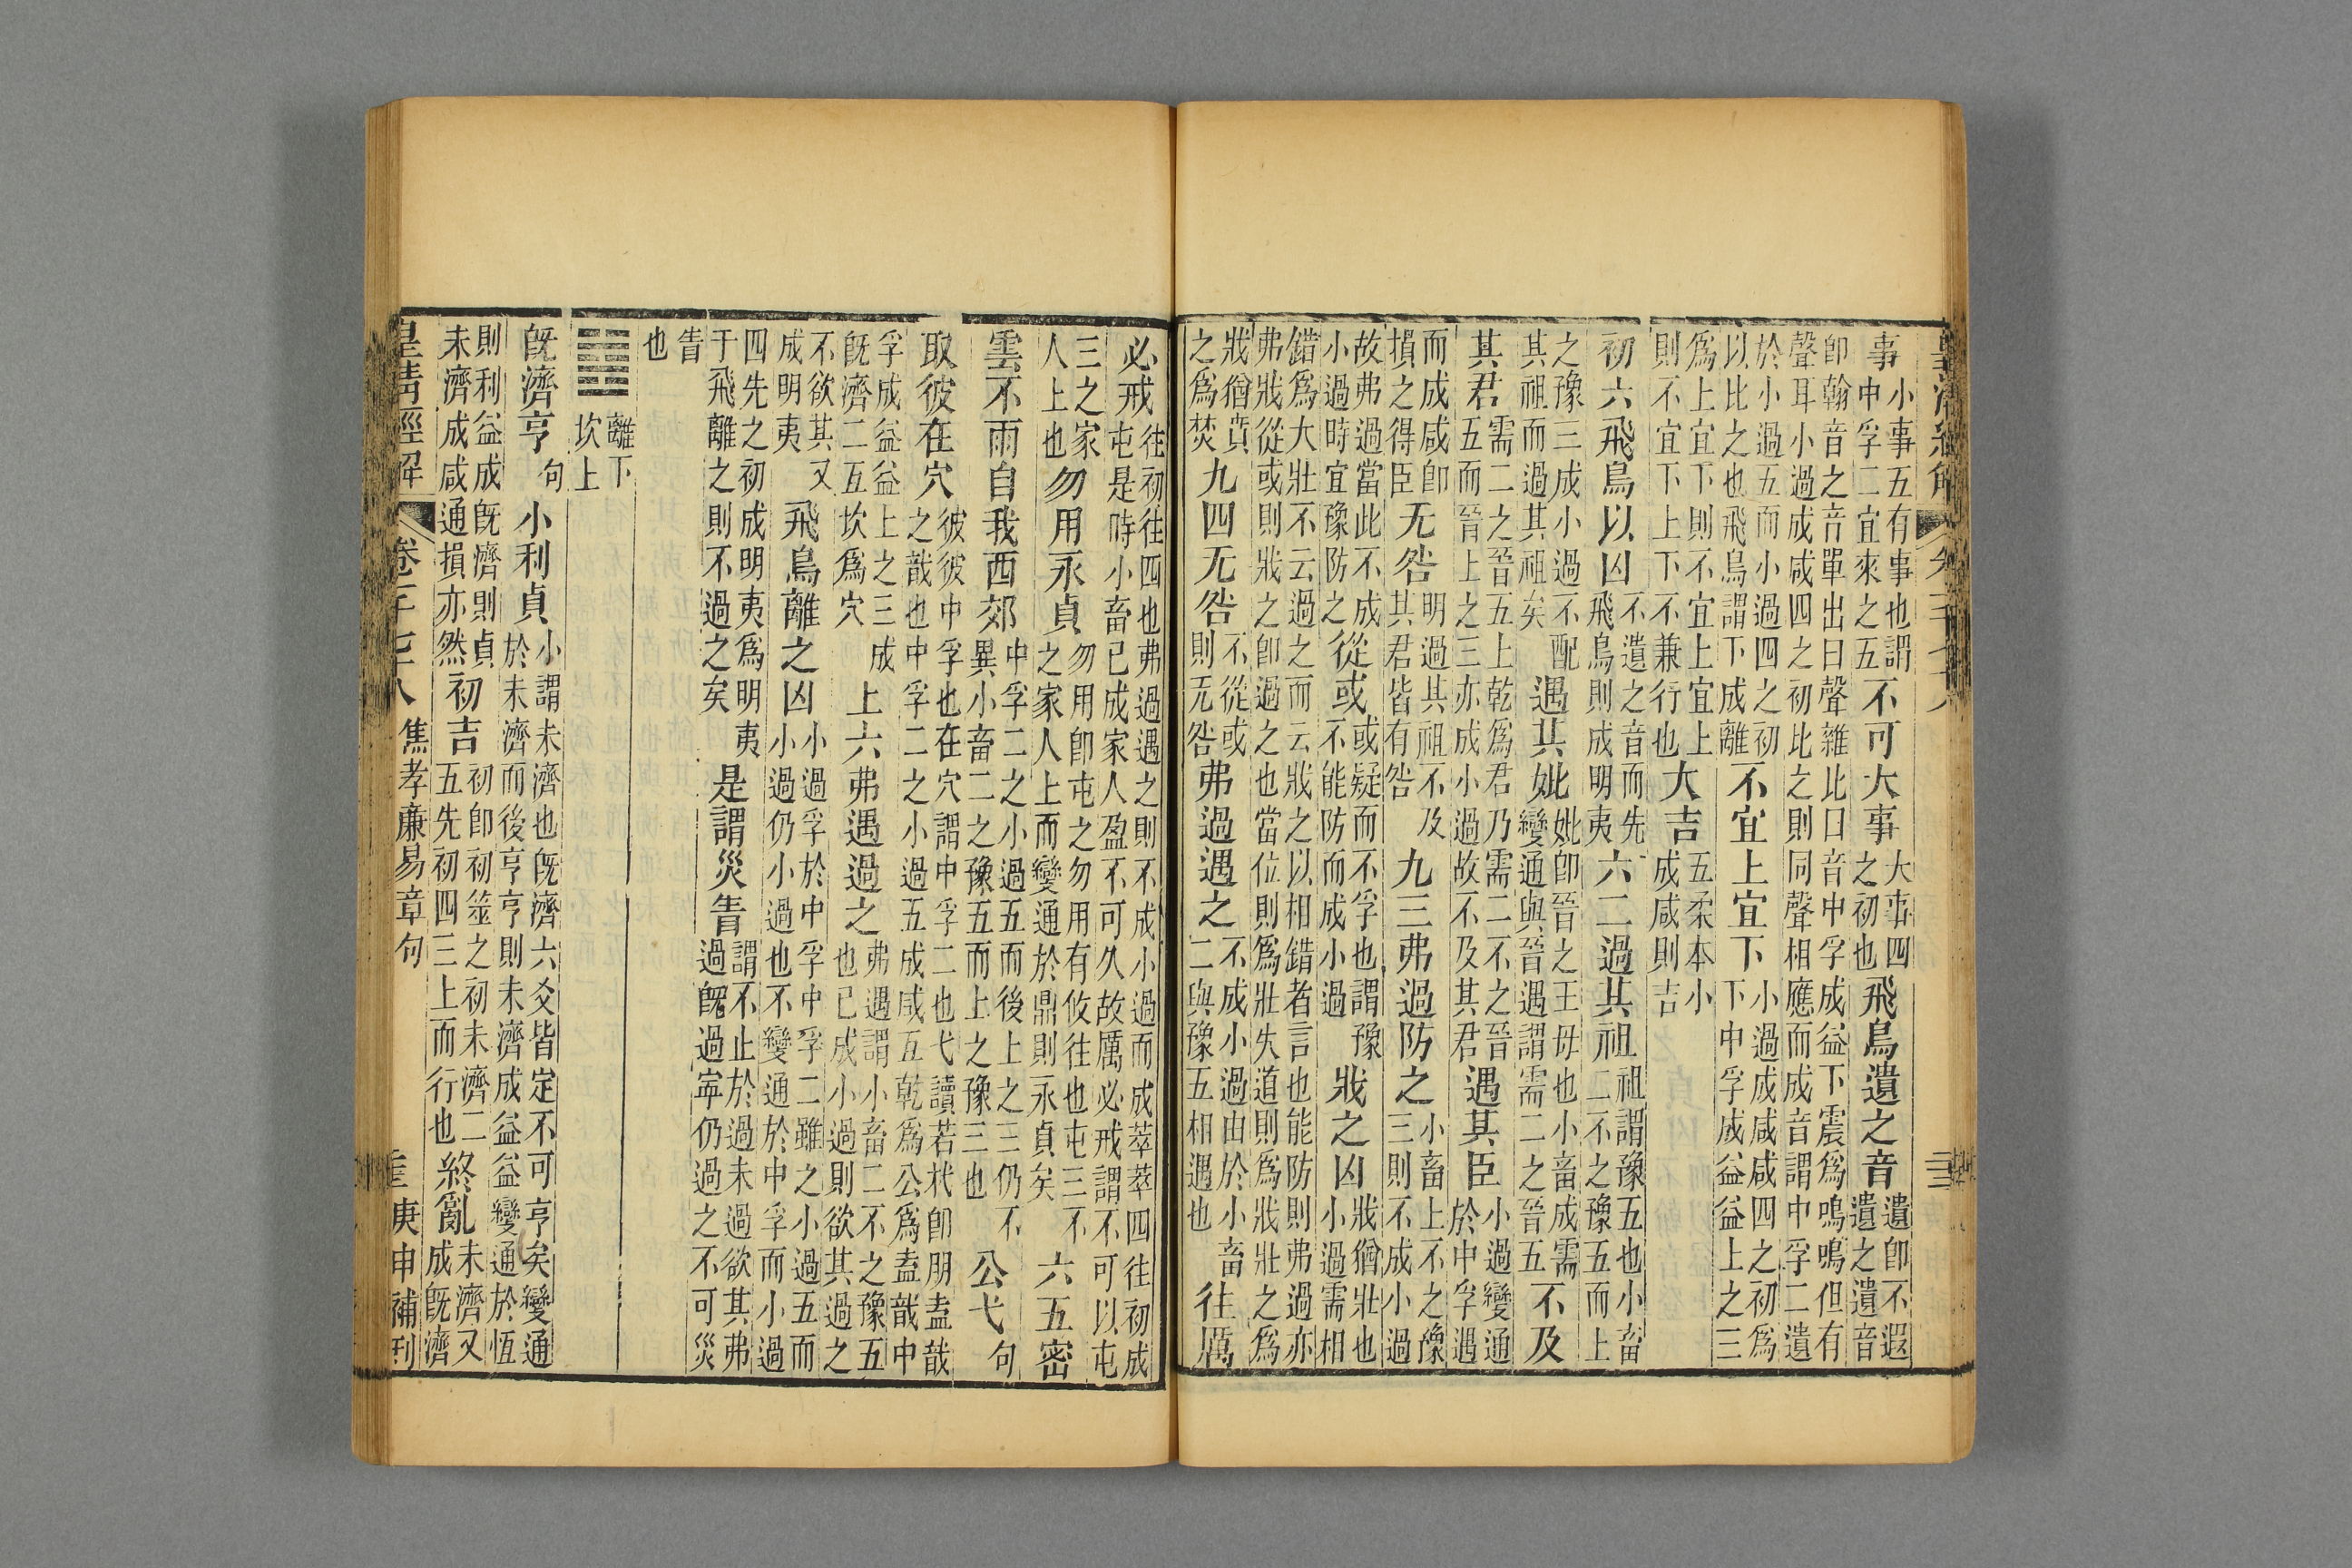 皇清經解 卷一千七十八
事小事五有事也謂中孚二宜來之五不可大事大事四之初也飛鳥遺之音遺卽不遐遺之遺音
卽翰音之音單出曰聲雜比曰音中孚成益下震爲鳴鳴但有
聲耳小過成咸四之初比之則同聲相應而成音謂中孚二遺
於小過五而小過四之初以比之也飛鳥謂下成離不宜上宜下小過成咸咸四之初爲下中孚成益益上之三
爲上宜下則不宜上宜上則不宜下上下不兼行也大吉五柔本小成咸則吉
初六飛鳥以凶不遺之音而先飛鳥則成明夷六二過其祖祖謂豫五也小畜二不之豫五而上
之豫三成小過不配其祖而過其祖矣遇其妣妣卽晉之王母也小畜成需變通與晉遇謂需二之晉五不及
其君需二之晉五上乾爲君乃需二不之晉五而晉上之三亦成小過故不及其君遇其臣小過變通於中孚遇
而成咸卽損之得臣无咎明過其祖不及其君皆有咎九三弗過防之小畜上不之豫三則不成小過
故弗過當此不成小過時宜豫防之從或或疑而不孚也謂豫不能防而成小過戕之凶戕猶壯也小過需相
錯爲大壯不云過之而云戕之以相錯者言也能防則弗過亦
弗戕從或則戕之卽過之也當位則爲壯失道則爲戕壯之爲
戕猶賁之爲焚九四无咎不從或則无咎弗過遇之不成小過由於小畜二與豫五相遇也往厲
必戒往初往四也弗過遇之則不成小過而成萃萃四往初成屯是時小畜已成家人盈不可久故厲必戒謂不可以屯
三之家人上也勿用永貞勿用卽屯之勿用有攸往也屯三不之家人上而變通於鼎則永貞矣六五密
雲不雨自我西郊中孚二之小過五而後上之三仍不異小畜二之豫五而上之豫三也公弋句
取彼在穴彼彼中孚也在穴謂中孚二也弋讀若杙卽朋盍戠之戠也中孚二之小過五成咸五乾爲公爲盍戠中
孚成益益上之三成旣濟二五坎爲穴上六弗遇過之弗遇謂小畜二不之豫五也已成小過則欲其過之
不欲其又成明夷飛鳥離之凶小過孚於中孚中孚二雖之小過五而小過仍小過也不變通於中孚而小過
四先之初成明夷爲明夷于飛離之則不過之矣是謂災眚謂不止於過未過欲其弗過旣過寕仍過之不可災
眚也
離下坎上
旣濟亨句小利貞小謂未濟也旣濟六爻皆定不可亨矣變通於未濟而後亨亨則未濟成益益變通於恆
則利益成旣濟則貞未濟成咸通損亦然初吉初卽初筮之初未濟二五先初四三上而行也終亂未濟又成旣濟
皇清經解 卷一千七十八 焦孝廉易章句 庚申補刊